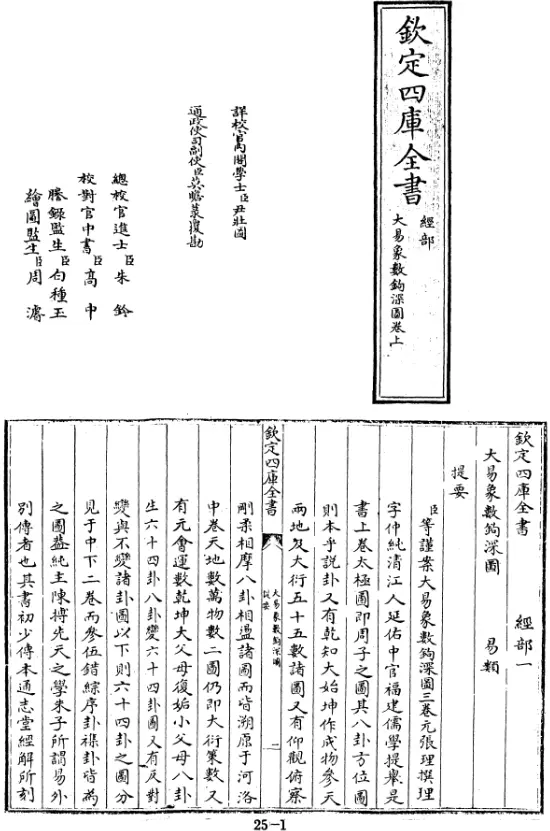 欽定四庫全書
經部
大易象數鉤深圖卷上
詳校官內閣學士臣尹壯圖
通政使司副使臣莫瞻菉覆勘
總校官進士臣朱鈐
校對官中書臣高中
謄錄監生臣向種玉
繪圖監生臣周濬
欽定四庫全書 經部一
大易象數鉤深圖 易類
提要
臣等謹案大易象數鉤深圖三卷元張理撰理
字仲純清江人延佑中官福建儒學提舉是
書上卷太極圖即周子之圖其八卦方位圖
則本乎說卦又有乾知大始坤作成物參天
兩地及大衍五十五數諸圖又有仰觀俯察
欽定四庫全書
大易象數鉤深圖
提要
一
剛柔相摩八卦相盪諸圖而皆溯原于河洛
中卷天地數萬物數二圖仍即大衍策數又
有元會運數乾坤大父母復姤小父母八卦
生六十四卦八卦變六十四卦圖又有反對
變與不變諸卦圖以下則六十四卦之圖分
見于中下二卷而參伍錯綜序卦雜卦皆為
之圖蓋純主陳摶先天之學朱子所謂易外
別傳者也其書初少傳本通志堂經解所刻
25-1